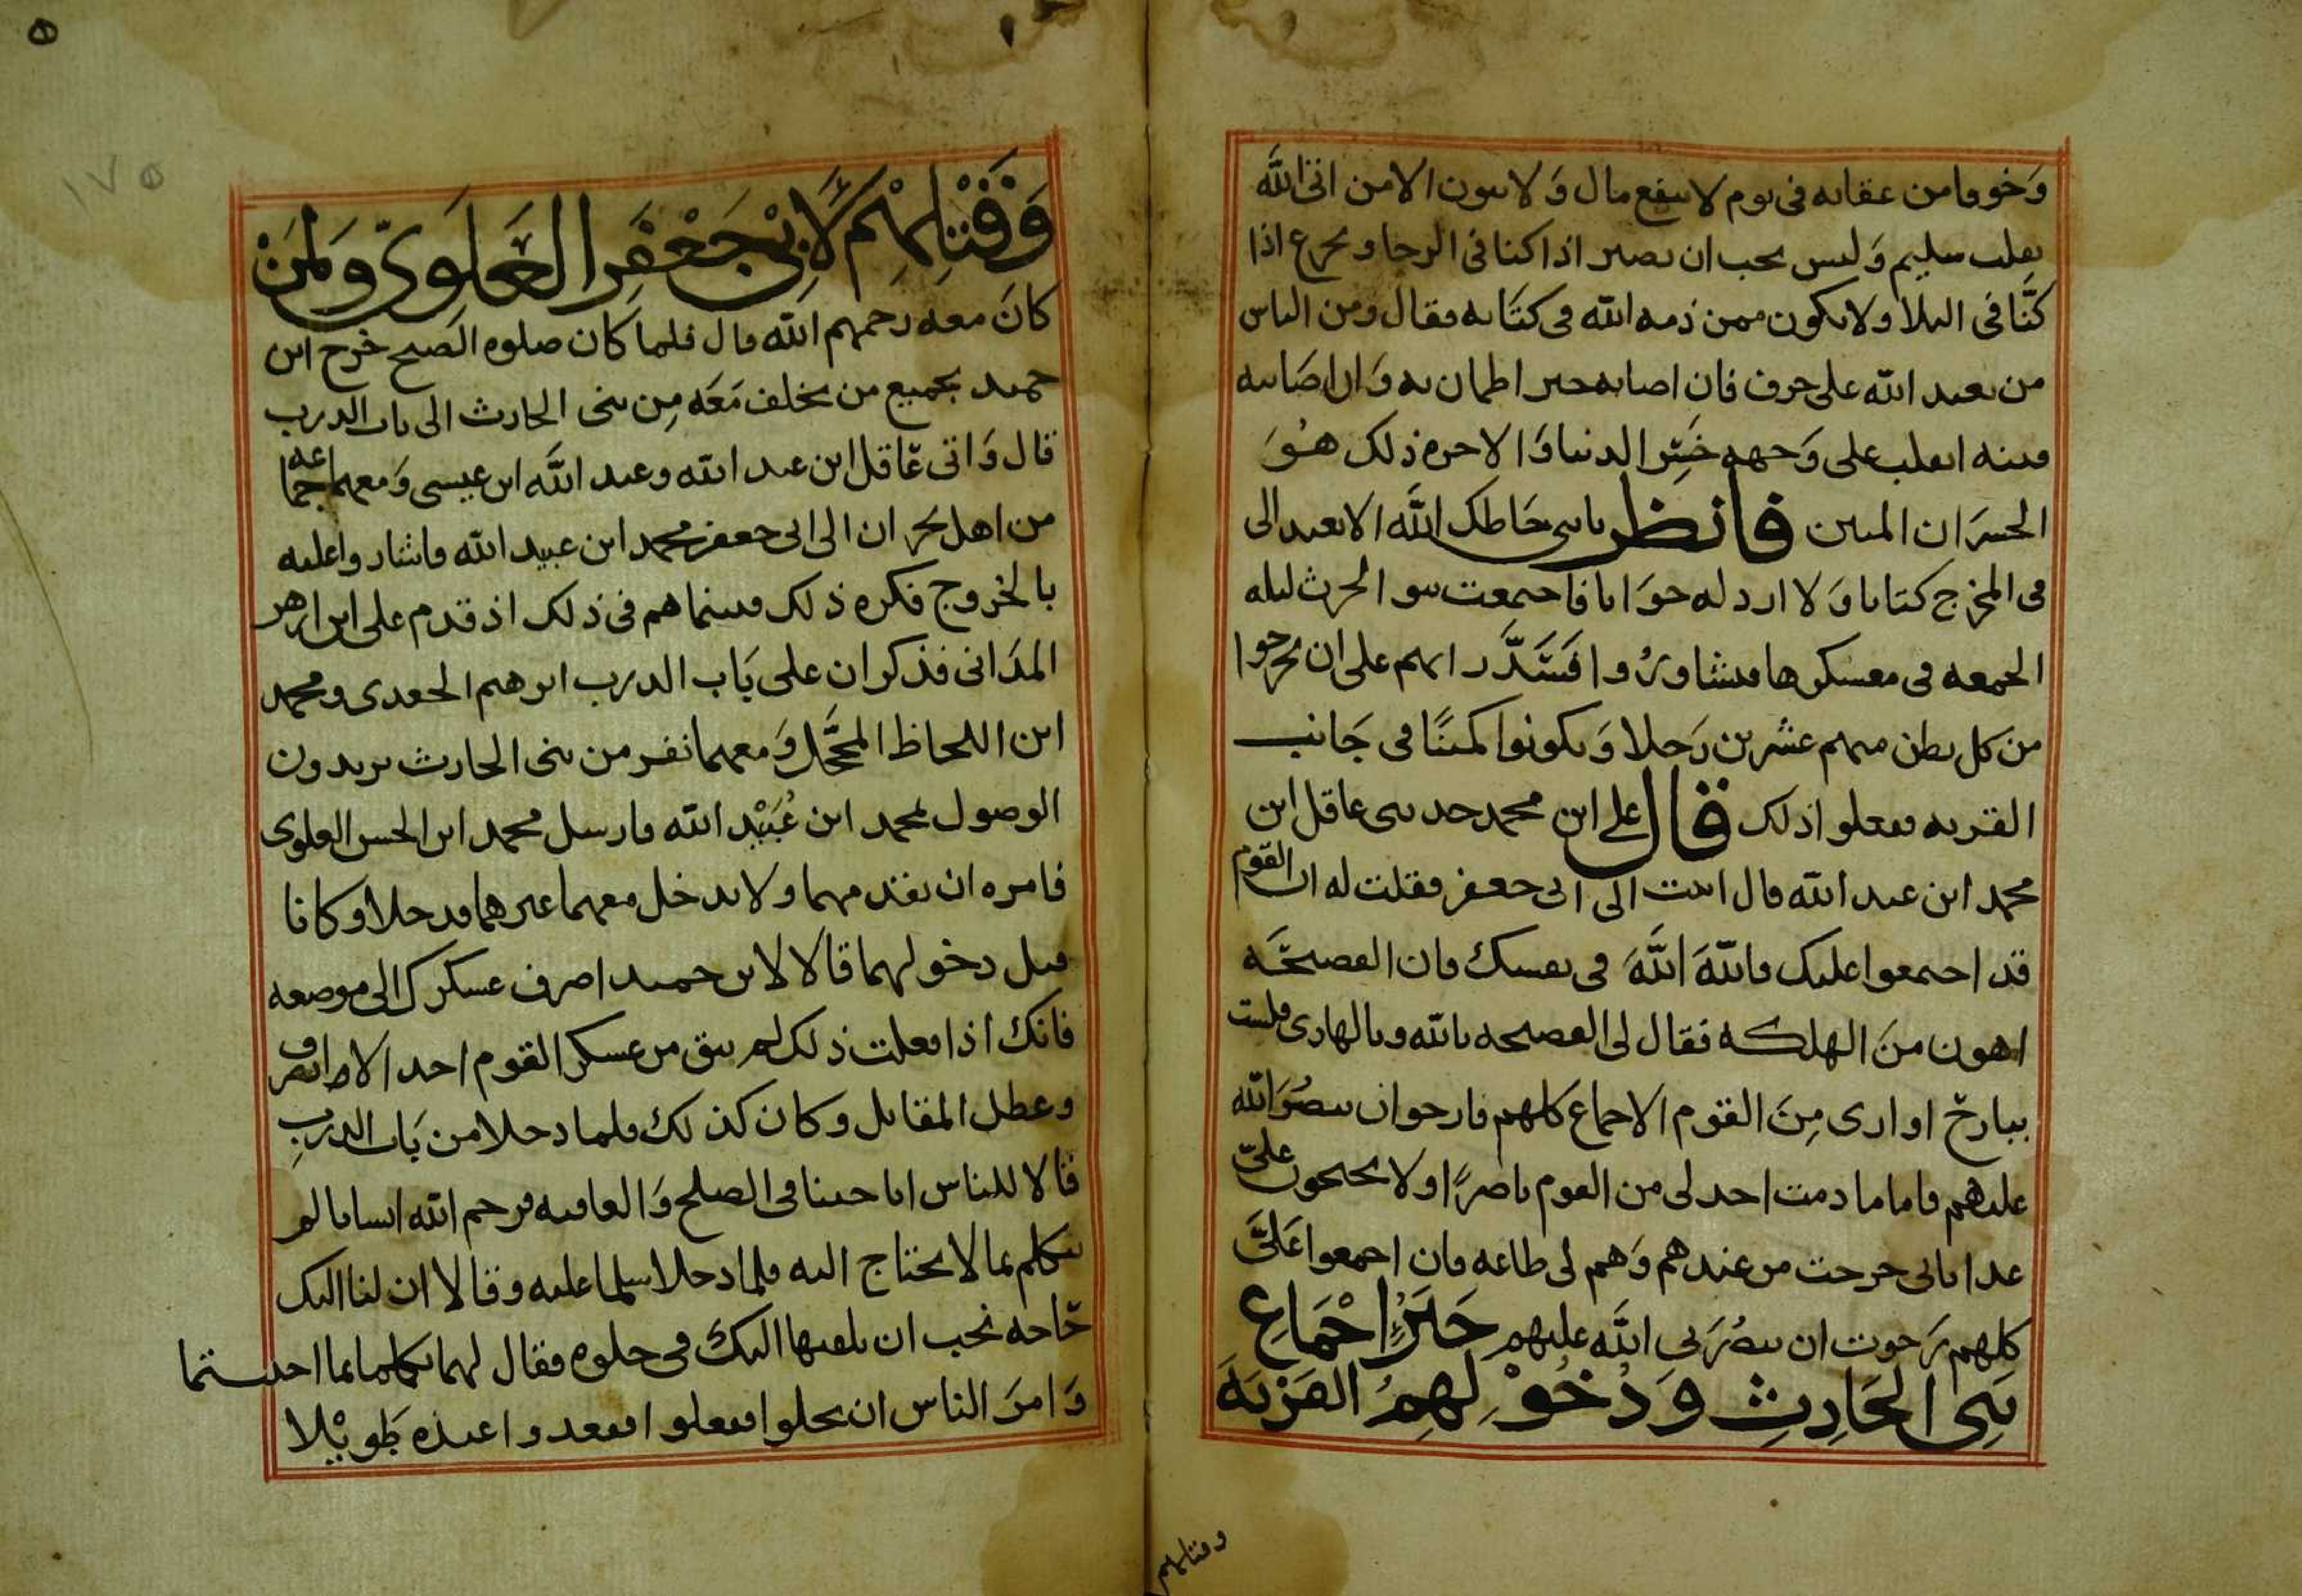 وَخوفا من عقابه فى يوم لا ينفع مال وَلا بنون الا من اتى اللَّه
بقلب سليم وَليس يجب ان نصبر اذا كنا فى الرخا ونجزع اذا
كنَّا فى البلا ولا نكون ممن ذمه الله فى كتَابه فقال ومن الناس
من يعبد الله على حرف فان اصابه خير اطمان به وَان اصَابته
فتنه انقلب على وَجهه خَسِر الدنيا وَالاخره ذلك هُوَ
الخسرَان المبين فانظر يا بنى حَاطك اللَّه الا تعيد الى
فى المخرج كتابا وَلا ارد له جوَابا فاجتمعت بنو الحرث ليله
الجمعه فى معسكرها فتشاورُوا فَسَدَّد رايهم على ان يخرجوا
من كل بطن منهم عشرين رَجلا وَيكونوا كمينًا فى جَانب
القريه ففعلوا ذلك قال على ابن محمد حدثنى عاقل ابن
محمد ابن عبد الله قال اتيت الى ابى جعفر فقلت له ان القوم
قد اجتمعوا عليك فاللهَ اللَّهَ فى نفسك فان الفضيحَه
اهون منَ الهلكه فقال لى الفضيحه بالله وبالهادى فلست
ببارح او ارى مِنَ القوم الاجماع كلهم فارجوا ان ينصُرَ الله
عليهم فاما ما دمت احد لى من القوم ناصرًا ولا يحتجون علىّ
غدا بانى خرجت من عندهم وَهم لى طاعه فان اجمعوا عَلَىَّ
كلهم رَجوت ان ينصُرَنى اللَّه عليهم خَبَرُ اجْمَاعِ
بَنِى الحَارِثِ وَدُخُوْلِهِمُ القَرْيَهَ
وقتلهم
وَقَتْلِهِمْ لاَبِىْ جَعْفَرِ العَلَوِىّ وَلمَنْ
كانَ معه رحمهم الله قال فلما كان صلوه الصبح خرج ابن
حميد بجميع من تخلف مَعَه مِن بنى الحارث الى باب الدرب
قال وَاتى عَاقل ابن عبد الله وعبد اللَّه ابن عيسى وَمعهما جماعه
من اهل نجران الى ابى جعفر محمد ابن عبيد الله فاشاروا عليه
بالخروج فكره ذلك فبينما هم فى ذلك اذ قدم على ابن ازهر
المدَانى فذكر ان على بَاب الدرب ابرهيم الجعدى ومحمد
ابن اللحاظ المحَجَّل وَمعهما نفر من بنى الحارث يريدون
الوصول لمحمد ابن عُبَيْد الله فارسل محمد ابن الحسن العلوى
فامره ان يفتد مهما ولا يدخل معهما غيرهما فدخلا وكانا
قبل دخولهما قالا لابن حميد اصرف عسكرك الى موضعه
فانك اذا فعلت ذلك لم يبق من عسكر القوم احد الا انصرف
وعطل المقاتل وكان كذلك فلما دخلا من بَاب الدربِ
قالا للناس انا جينا فى الصلح وَالعافيه فرحم الله انسانا لم
يتكلم بما لا يحتاج اليه فلما دخلا سلما عليه وقالا ان لنا اليك
حَاجه نحب ان نلقيها اليك فى خلوه فقال لهما تكلما بما احببتما
وَامرَ الناس ان يخلوا ففعلوا فقعدوا عنده طَوِيْلا